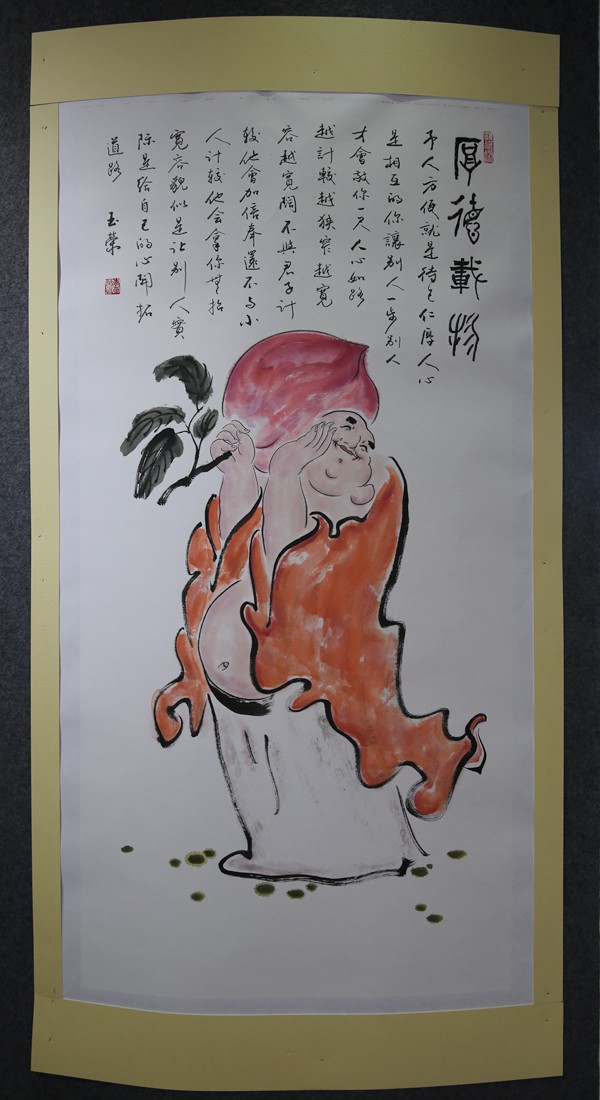 厚德載物
予人方便就是待己仁厚人心
是相互的你讓別人一步別人
才會敬你一尺人心如路
越計較越狹窄越寬
容越寬闊不與君子計
較他會加倍奉還不与小
人計較他会拿你無招
寬容貌似是让別人實
际是给自己的心開拓
道路
玉榮